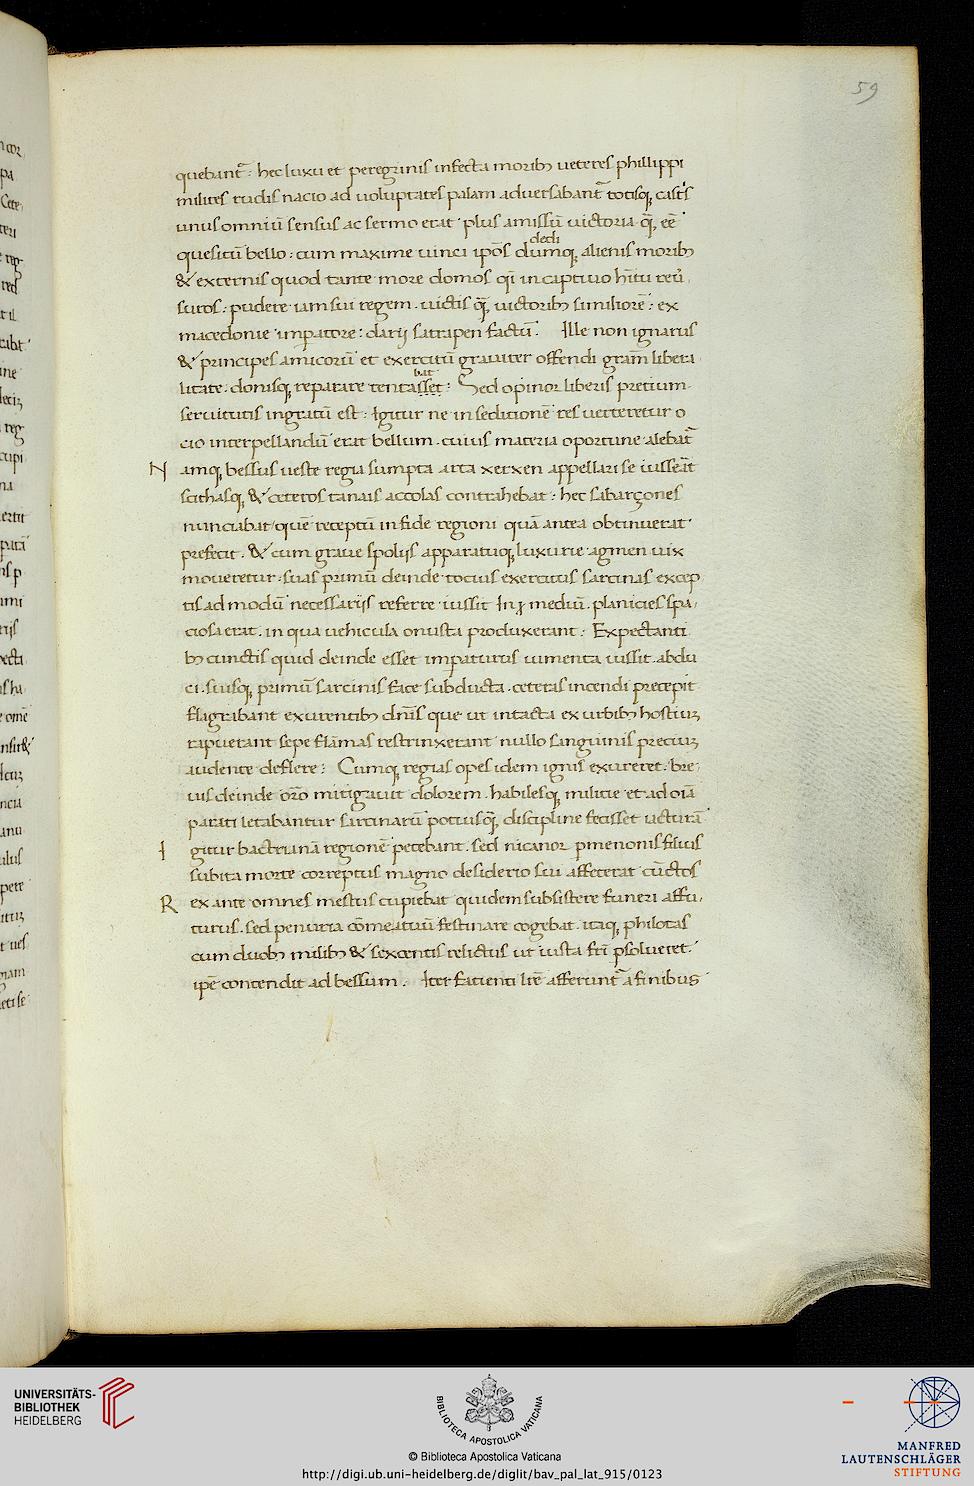 59
quebant᷑ : hec luxu et peregrinis infecta moribꝫ ueteres phillippi
milites rudis nacio ad uoluptates palam aduersabant᷑ totisqꝫ cast's
unus omniū sensus ac sermo erat · plus amissū uictoria · qꝫ̄ eē
quesitū bello : cum maxime uinci ip̄os dumqꝫ alienis moribꝫ
dedi
& externis quod tante more domos qī in captiuo h̄itu reū
suros : pudere iam sui regem . uictis qꝫ̄ uictoribꝫ similiorē : ex
macedonie imꝑatore : darij satrapen factū . Ille non ignarus
& principes amicorū et exercitū grauiter offendi grām libera
litate : donisqꝫ reparare tentasset : Sed opinor liberis pretium
bat
seruitutis ingratū est : Igitur ne in seditionē res uerteretur o
cio interpellandū erat bellum . cuius materia oportune alebat᷑
Namqꝫ bessus ueste regia sumpta arta xerxen appellari se iusseāt
scithasqꝫ & ceteros tanais accolas contrahebat : hec sabarçones
nunciabat quē receptū in fide regioni quā antea obtinuerat
prefecit . & cum graue spolijs apparatuqꝫ luxurie agmen uix
moueretur : suas primū deinde tocius exercitus sarcinas excep
tis admodū necessarijs referre iussit In mediū . planicies spa
ciosa erat . in qua uehicula onusta produxerant : Expectanti
bꝫ cunctis quid deinde esset imꝑaturus iumenta iussit . abdu
ci . suisqꝫ primū sarcinis face subducta . ceteras incendi precepit
flagrabant exurentibꝫ dn̄is que ut intacta ex urbibꝫ hostiuꝫ
rapuerant sepe flāmas restrinxerant nullo sanguinis preciuꝫ
audente deflere : Cumqꝫ regias opes idem ignis exureret . bre
uis deinde orō mitigauit dolorem . habilesqꝫ milicie et ad oīa
parati letabantur sarcinarū potius qꝫ̄ discipline fecisset iacturā
Igitur bactrianā regionē petebant . sed nicanor ꝑmenonis filius
subita morte correptus magno desiderio sui affecerat cūctos
Rex ante omnes mestus cupiebat quidem subsistere funeri affu
turus . sed penuria cōmeatuū festinare cogebat . itaqꝫ philotas
cum duobꝫ milibꝫ & sexcentis relictus ut iusta fr̄i ꝑsolueret .
ip̄e contendit ad bessum . Iter facienti l̄re afferunt᷑ a finibus
UNIVERSITÄTS-
BIBLIOTHEK
HEIDELBERG
BIBLIOTECA APOSTOLICA VATICANA
© Biblioteca Apostolica Vaticana
http://digi.ub.uni-heidelberg.de/diglit/bav_pal_lat_915/0123
MANFRED
LAUTENSCHLÄGER
STIFTUNG